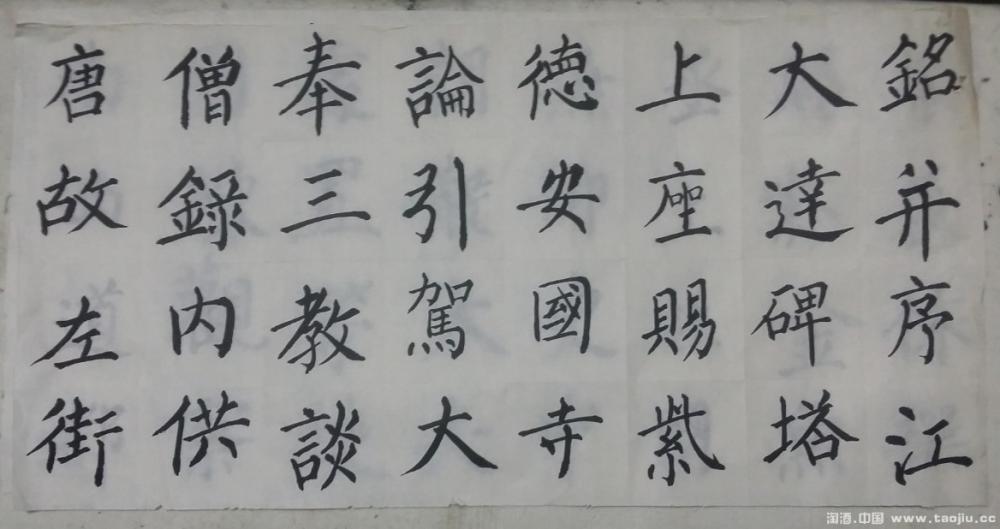 唐故左街
僧録内供
奉三教談
論引駕大
徳安國寺
上座賜紫
大達碑塔
銘并序江
淘酒.中国 www.taojiu.cc